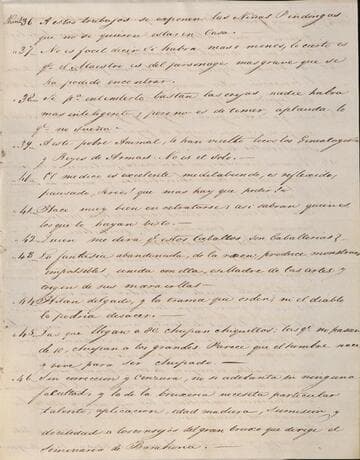 Num.º 36 A estos trabajos se exponen las Niñas Pindongas
que no se quieren estar en Casa.
37. No es facil decir si habra mas o menos, lo cierto es
q.e el Maestro es el personage mas grave que se
ha podido encontrar.
38. Si p.a entenderlo bastan las orejas nadie habra
mas inteligente; pero es de temer aplauda lo
q.e no suena.
39. A este pobre Animal, le han vuelto locos los Genealogistas
y Reyes de Armas. No es el solo.
40. El medico es excelente meditabundo, es reflecsivo,
pausado, serio ¿que mas hay que pedir?
41. Hace muy bien en retratarse; asi sabran quien es
los que le hayan visto.
42. Quien me dira q.e estos Caballos, son Caballerias?
43. La fantasia abandonada, de la razon, produce monstruos
imposibles; unida con ella, es Madre de las artes y
origen de sus maravillas
44. Hilan delgado, y la trama que urden; ni el diablo
la podria desacer.
45. Las que llegan a 80. chupan chiquillos; las q.e no pasan
de 18. chupan a los grandes. Parece que el hombre nace
y vive para ser chupado
46. Sin correccion y Censura, no se adelanta en ninguna
facultad, y la de la brujeria necesita particular
talento, aplicacion, edad madura, sumision, y
docilidad a los consejos del gran brujo que dirige el
Seminario de Barahona.